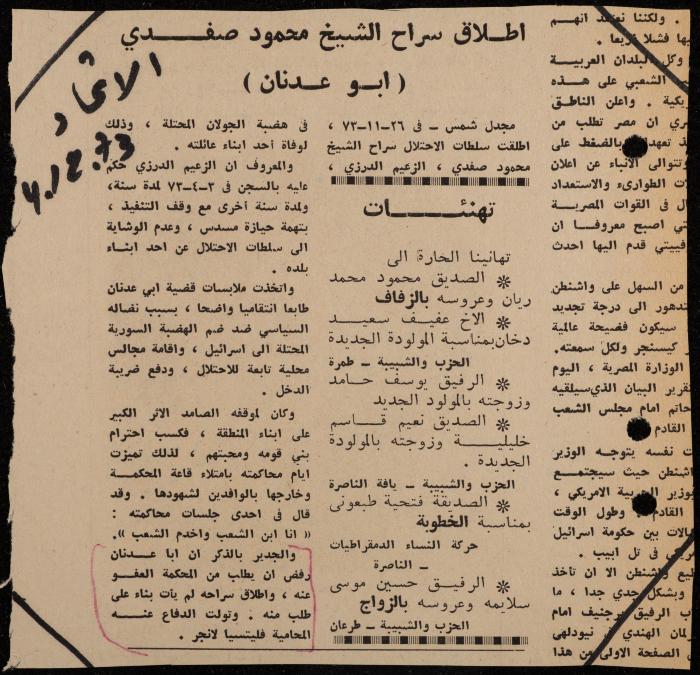 اطلاق سراح الشيخ محمود صفدي
( ابو عدنان )
الاتحاد
4.12.73
مجدل شمس ـ في ٢٦-١١-٧٣ ،
اطلقت سلطات الاحتلال سراح الشيخ
محمود صفدي ، الزعيم الدرزي ،
في هضبة الجولان المحتلة ، وذلك
لوفاة احد ابناء عائلته .
والمعروف ان الزعيم الدرزي حكم
عليه بالسجن في ٣-٤-٧٣ لمدة سنة،
ولمدة سنة أخرى مع وقف التنفيذ ،
بتهمة حيازة مسدس ، وعدم الوشاية
الى سلطات الاحتلال عن احد ابناء
بلده .
واتخذت ملابسات قضية ابي عدنان
طابعا انتقاميا واضحا ، بسبب نضاله
السياسي ضد ضم الهضبة السورية
المحتلة الى اسرائيل ، واقامة مجالس
محلية تابعة للاحتلال ، ودفع ضريبة
الدخل .
وكان لموقفه الصامد الاثر الكبير
على ابناء المنطقة ، فكسب احترام
بني قومه ومحبتهم ، لذلك تميزت
ايام محاكمته بامتلاء قاعة المحكمة
وخارجها بالوافدين لشهودها . وقد
قال في احدى جلسات محاكمته :
« انا ابن الشعب واخدم الشعب ».
والجدير بالذكر ان ابا عدنان
رفض ان يطلب من المحكمة العفو
عنه ، واطلاق سراحه لم يأت بناء على
طلب منه . وتولت الدفاع عنه
المحامية فليتسيا لانجر .
تهنئات
تهانينا الحارة الى
※ الصديق محمود محمد
ريان وعروسه بالزفاف
※ الاخ عفيف سعيد
دخان بمناسبة المولودة الجديدة
الحزب والشبيبة ـ طمرة
※ الرفيق يوسف حامد
وزوجته بالمولود الجديد
※ الصديق نعيم قاسم
خليلية وزوجته بالمولودة
الجديدة .
الحزب والشبيبة ـ يافة الناصرة
※ الصديقة فتحية طبعوني
بمناسبة الخطوبة
حركة النساء الدمقراطيات
ـ الناصرة
※ الرفيق حسين موسى
سلايمه وعروسه بالزواج
الحزب والشبيبة ـ طرعان
. ولكننا نعتقد انهم
فشلا ذريعا .
وكل البلدان العربية
الشعبي على هذه
. واعلن الناطق
ان مصر تطلب من
تعهد بالضغط على
وتتوالى الانباء عن اعلان
الطوارىء والاستعداد
في القوات المصرية
اصبح معروفا ان
قدم اليها احدث
من السهل على واشنطن
تدهور الى درجة تجديد
سيكون فضيحة عالمية
كيسنجر ولكل سمعته.
الوزارة المصرية ، اليوم
تقرير البيان الذي سيلقيه
حاتم امام مجلس الشعب
القادم
نفسه يتوجه الوزير
واشنطن حيث سيجتمع
الامريكي ،
القادم . وطول الوقت
بين حكومة اسرائيل
في تل ابيب .
واشنطن الا ان تأخذ
وبشكل جدي جدا ، ما
الرفيق برجنيف امام
الهندي في نيودلهي
الصفحة الاولى من هذا